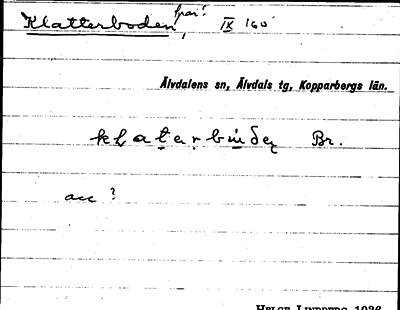 Klatterboden, spar? IX 160
Älvdalens sn, Älvdals tg, Kopparbergs län.
Br.
acc ?
HELGE LINDBERG 1936